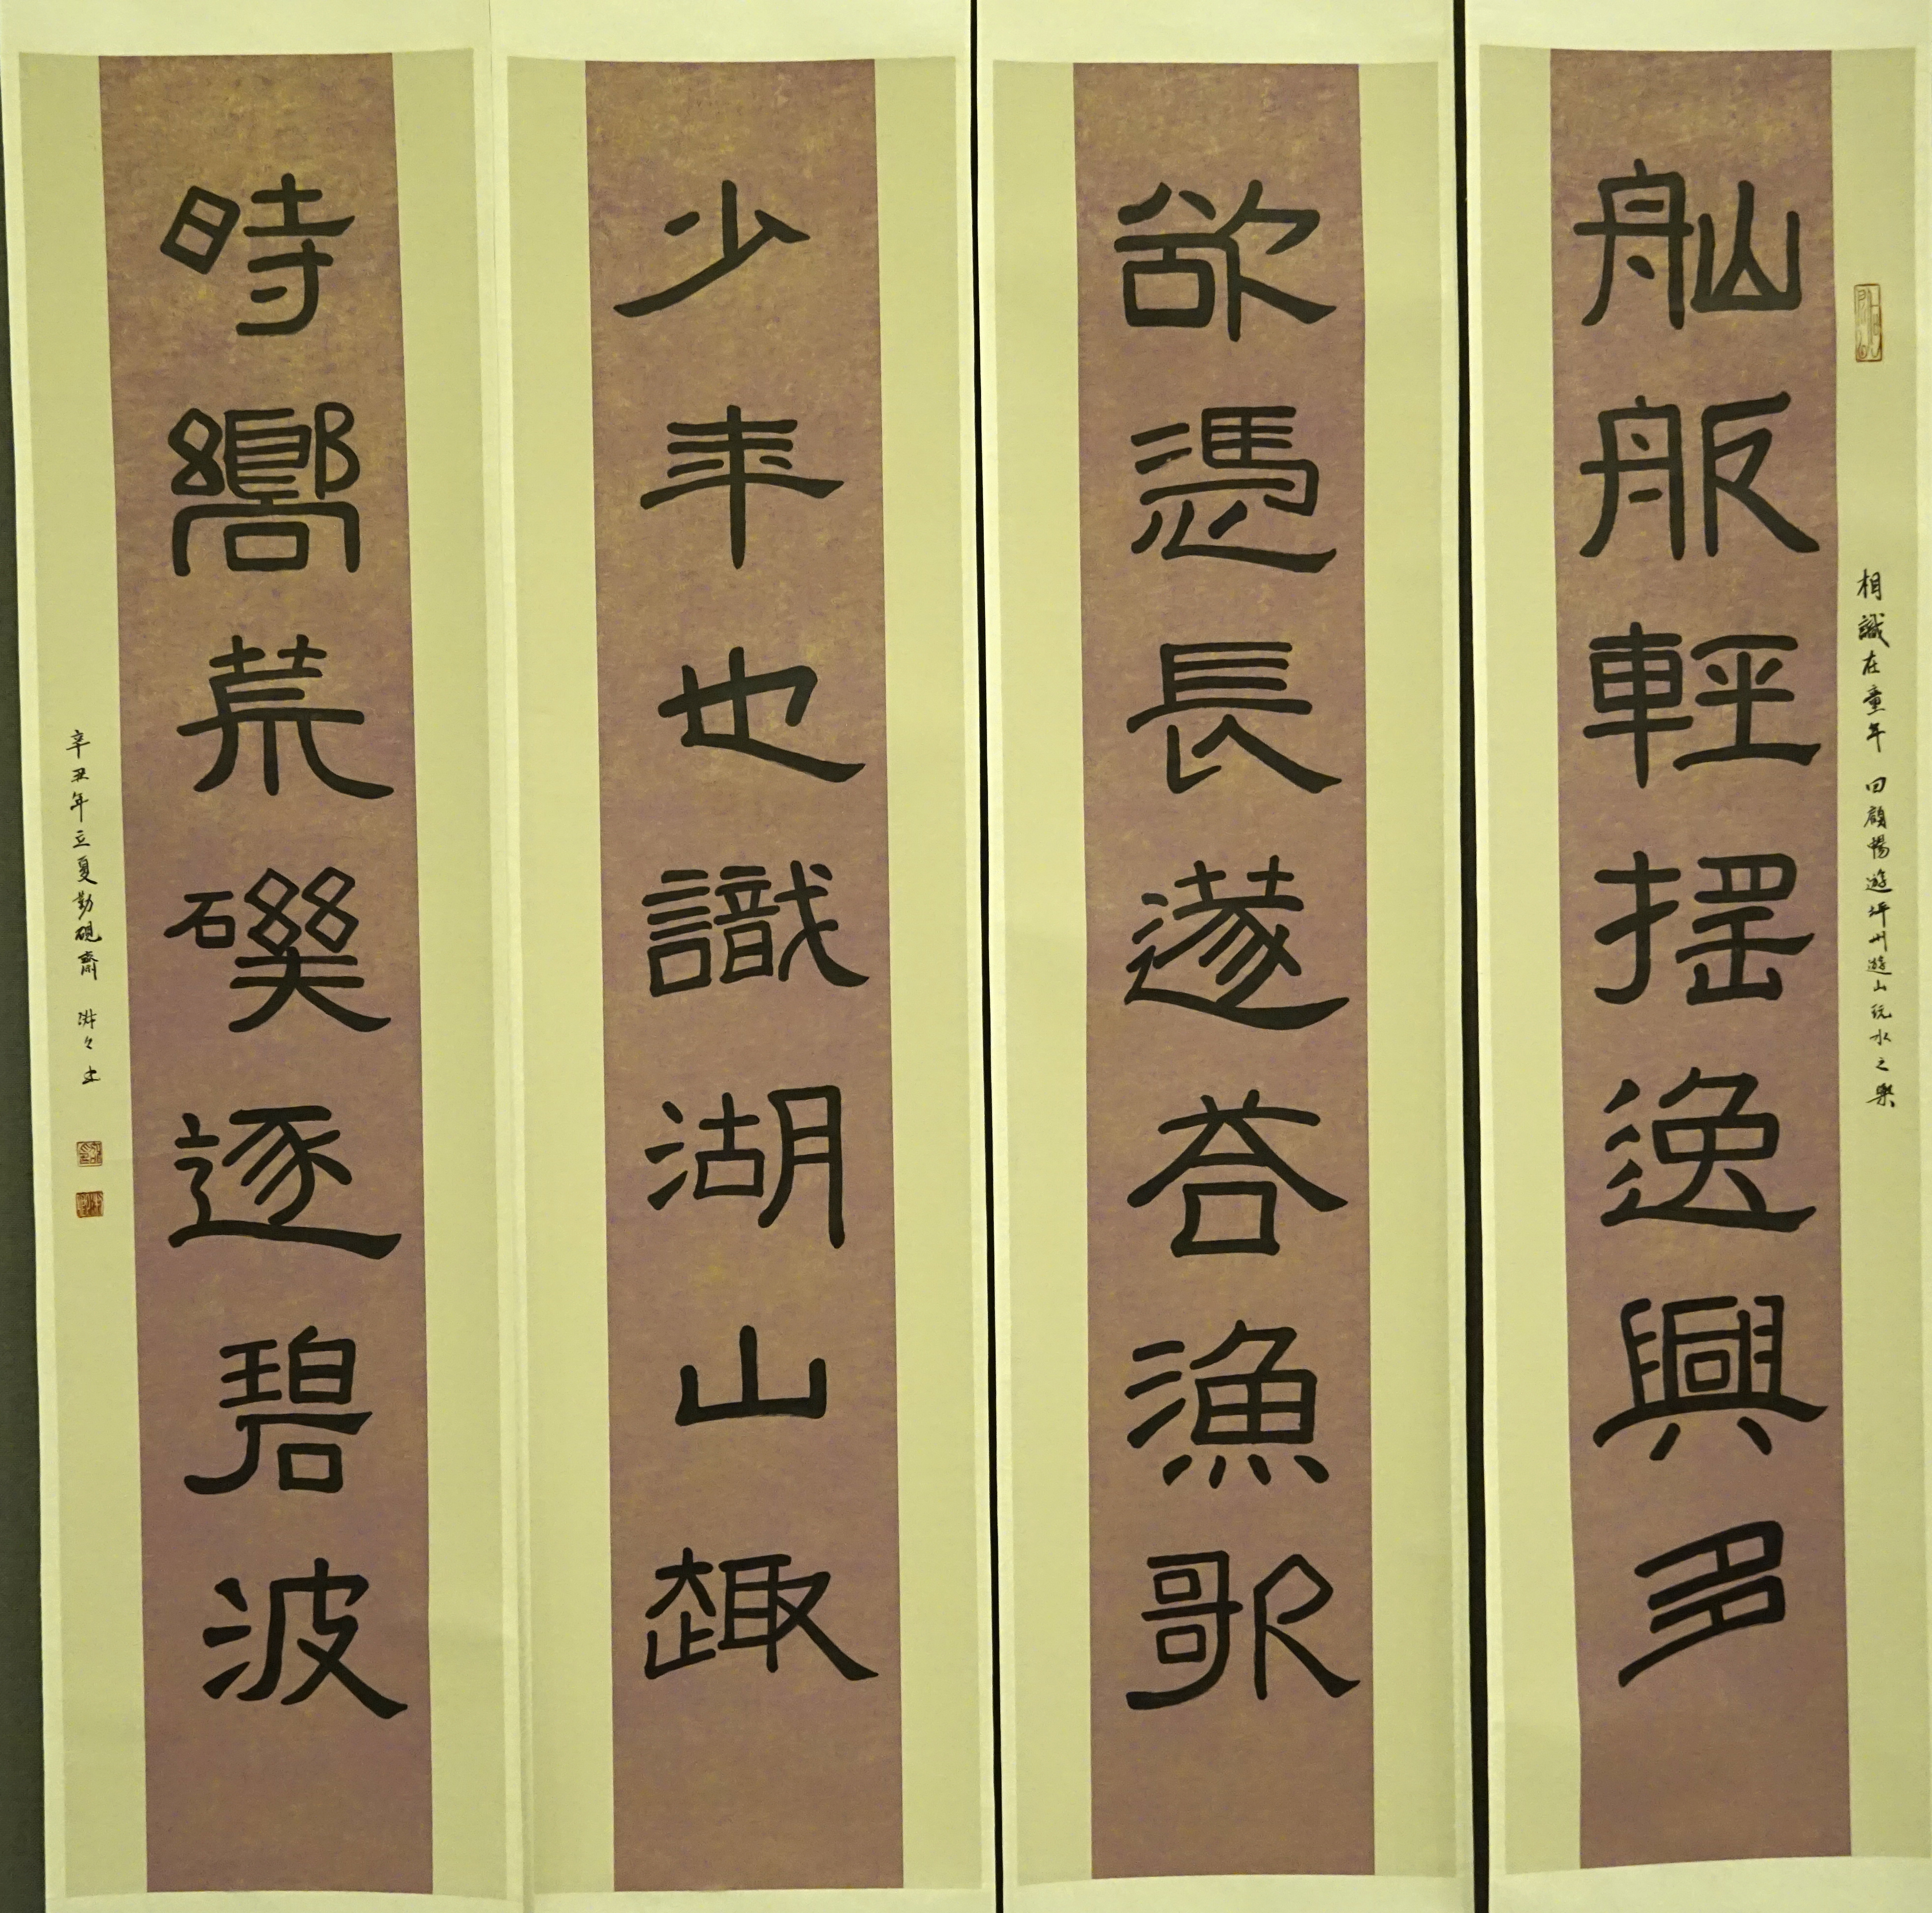 相識在童年 回顧暢遊坪州遊山玩水之樂
舢舨輕搖逸興多
欲憑長篴答漁歌
少年也識湖山趣
時嚮荒磯逐碧波
辛丑年立夏勤硯齋